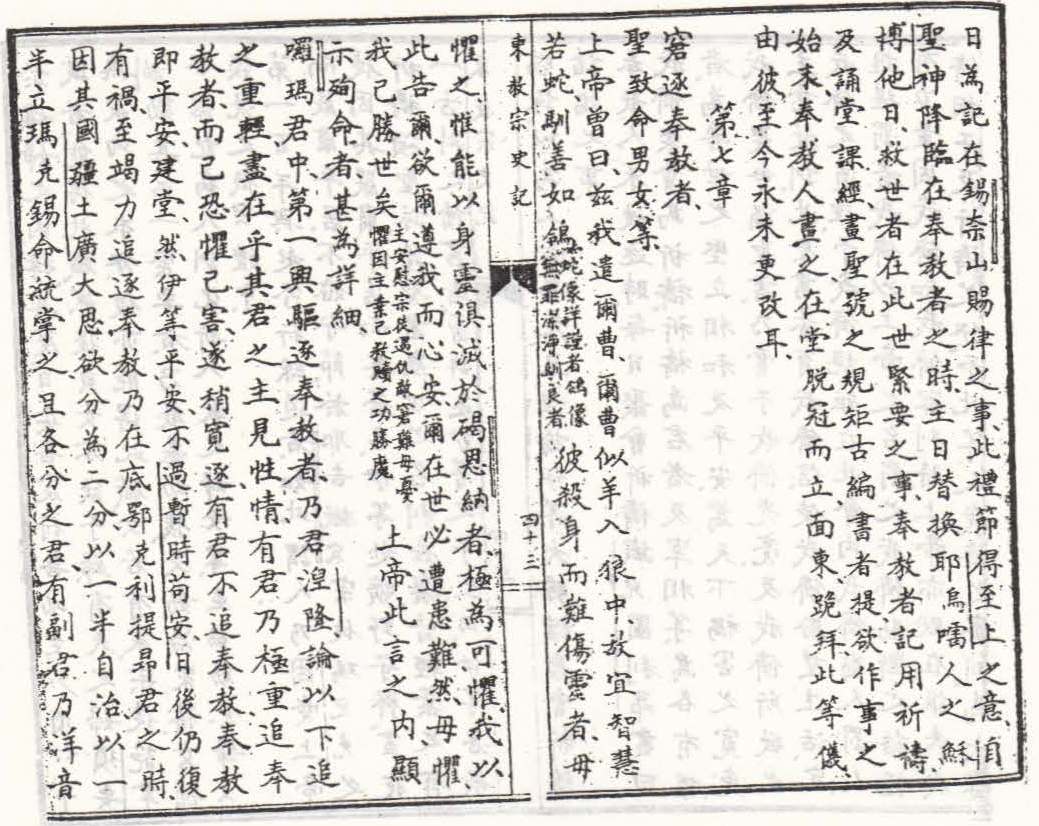 日為記在錫奈山賜律之事此禮節得至上之意、自
聖神降臨在奉教者之時、主日替換耶烏嚅人之穌
博他日、救世者在此世緊要之事、奉教者記用祈禱、
及誦堂課經、畫聖號之規矩古編書者提欲作事之
始末奉教人畫之在堂脱冠而立面東、跪拜此等儀、
由彼至今永未更改耳、
第七章
窘逐奉教者、
聖致命男女等、
上帝曾曰、兹我遣爾曹、爾曹似羊入狼中、故宜智慧
若蛇馴善如鴿蛇像詳謹者鴿像無罪潔淨馴良者、彼殺身而難傷靈者、毋
東教宗史記
四十三
懼之、惟能以身靈俱滅於碣恩納者、極為可懼、我以
此告爾欲爾遵我而心安爾在世必遭患難然毋懼、
我已勝世矣主安慰宗徒遇仇敵窘難毋憂懼因主業已救贖之功勝魔上帝此言之內、顯
示殉命者、甚為詳細、
囉瑪君中、第一興驅逐奉教者、乃君湼隆、論以下追
之重輕、盡在乎其君之主見性情、有君乃極重追奉
教者、而己恐懼己害、遂稍寬逐、有君不追奉教奉教
即平安建堂、然伊等平安、不過暫時苟安、日後仍復
有禍、至竭力追逐奉教乃在底鄂克利提昻君之時、
因其國疆土廣大思欲分為二分以一半自治、以一
半立瑪克錫命統掌之且各分之君、有副君、乃洋音